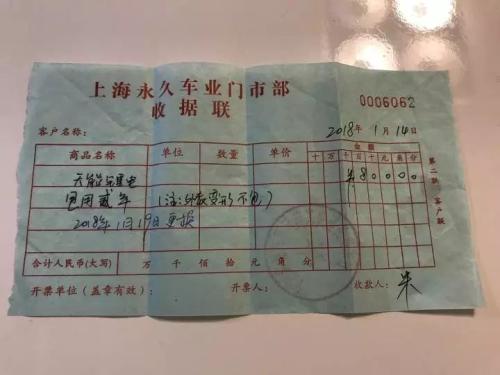 上海永久车业门市部
收据联
0006062
客户名称：
2018年1月14日
商品名称 单位 数量 单价 金额
十 万 千 百 十 元 角 分
天能
80000
包用贰年 （注：外表变形不包）
2018年1月19日更换
合计人民币(大写) 万 千 佰 拾 元 角 分
开票单位（盖章有效）： 开票人： 收款人：朱
第二联：客户联